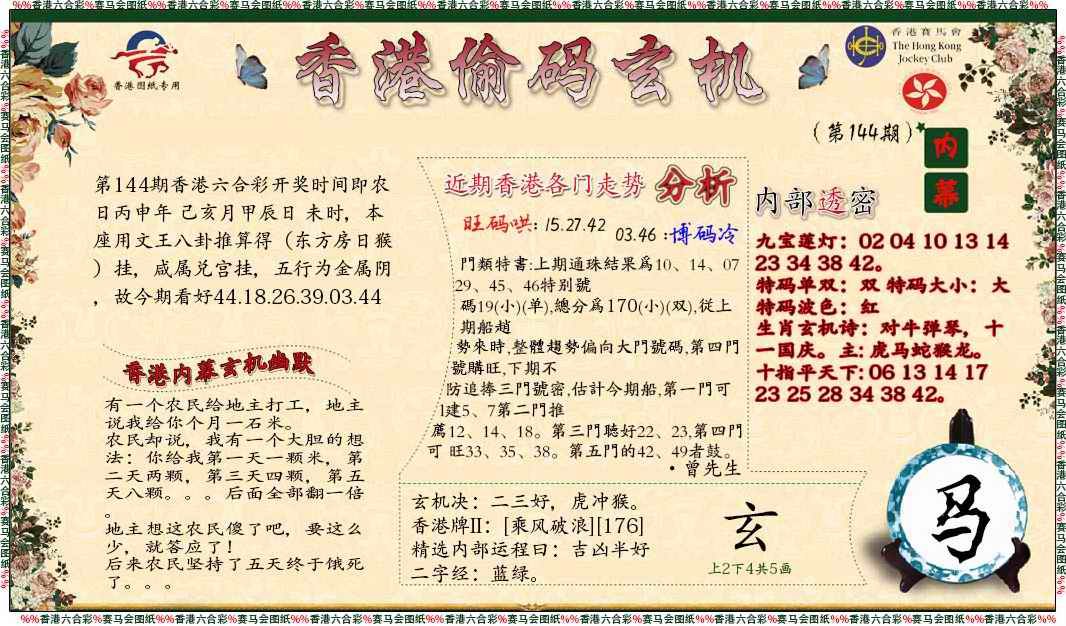 %%香港六合彩%赛马会图纸%%香港六合彩%赛马会图纸%%香港六合彩%赛马会图纸%%香港六合彩%赛马会图纸%%香港六合彩%赛马会图纸%%香港六合彩%赛马会图纸%%香港六合彩%%
香港图纸专用
香港偷码玄机
香港賽馬會
The Hong Kong
Jockey Club
(第144期)
内
幕
第144期香港六合彩开奖时间即农
日丙申年 己亥月甲辰日 未时，本
座用文王八卦推算得（东方房日猴
）挂，咸属兑宫挂，五行为金属阴
，故今期看好44.18.26.39.03.44
香港内幕玄机幽默
有一个农民给地主打工，地主
说我给你个月一石米。
农民却说，我有一个大胆的想
法：你给我第一天一颗米，第
二天两颗，第三天四颗，第五
天八颗。。。后面全部翻一倍
。
地主想这农民傻了吧，要这么
少，就答应了！
后来农民坚持了五天终于饿死
了。。。
近期香港各门走势 分析
旺码哄: 15.27.42
03.46 :博码冷
門類特書:上期通珠結果爲10、14、07
29、45、46特别號
碼19(小)(单),總分爲170(小)(双),從上
期船趙
勢來時,整體趨勢偏向大門號碼,第四門
號購旺,下期不
防追捧三門號密,估計今期船,第一門可
1建5、7第二門推
薦12、14、18。第三門聽好22、23,第四門
可 旺33、35、38。第五門的42、49者鼓。
·曾先生
玄机决：二三好，虎冲猴。
香港牌II：[乘风破浪][176]
精选内部运程曰：吉凶半好
二字经：蓝绿。
玄
上2下4共5画
内部透密
九宝莲灯：02 04 10 13 14
23 34 38 42。
特码单双：双 特码大小：大
特码波色：红
生肖玄机诗：对牛弹琴，十
一国庆。主: 虎马蛇猴龙。
十指平天下: 06 13 14 17
23 25 28 34 38 42。
马
%%香港六合彩%赛马会图纸%%香港六合彩%赛马会图纸%%香港六合彩%赛马会图纸%%香港六合彩%赛马会图纸%%香港六合彩%赛马会图纸%%香港六合彩%赛马会图纸%%香港六合彩%%